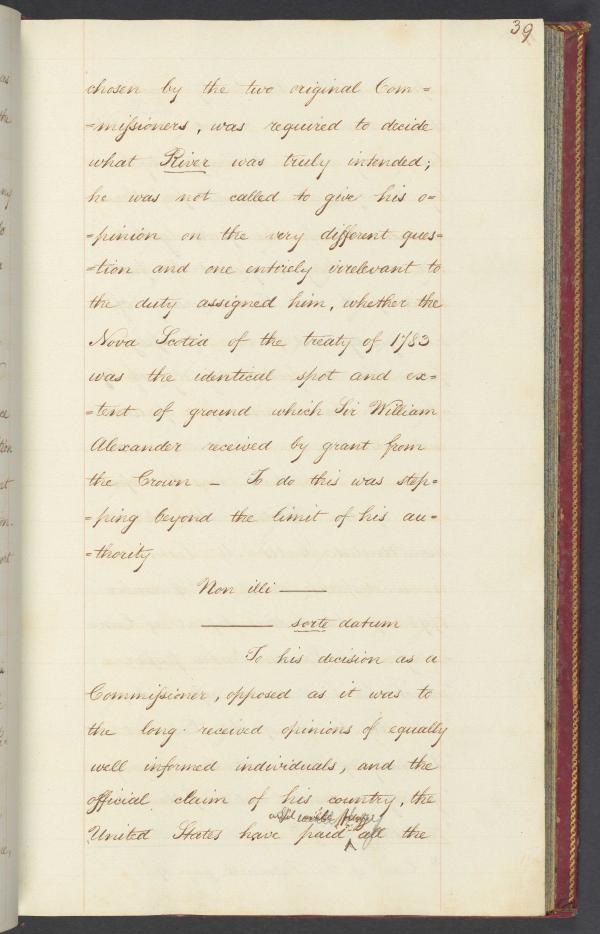 39
chosen by the two original Com=
=missioners, was required to decide
what River was truly intended;
he was not called to give his o=
=pinion on the very different ques=
=tion and one entirely irrelevant to
the duty assigned him, whether the
Nova Scotia of the treaty of 1783
was the identical spot and ex=
=tent of ground which Sir William
Alexander received by grant from
the Crown – To do this was step=
=ping beyond the limit of his au=
=thority
Non illi ——
—— sorte datum
To his decision as a
Commissioner, opposed as it was to
the long received opinions of equally
well informed individuals, and the
official claim of his country, the
United States have paid all the